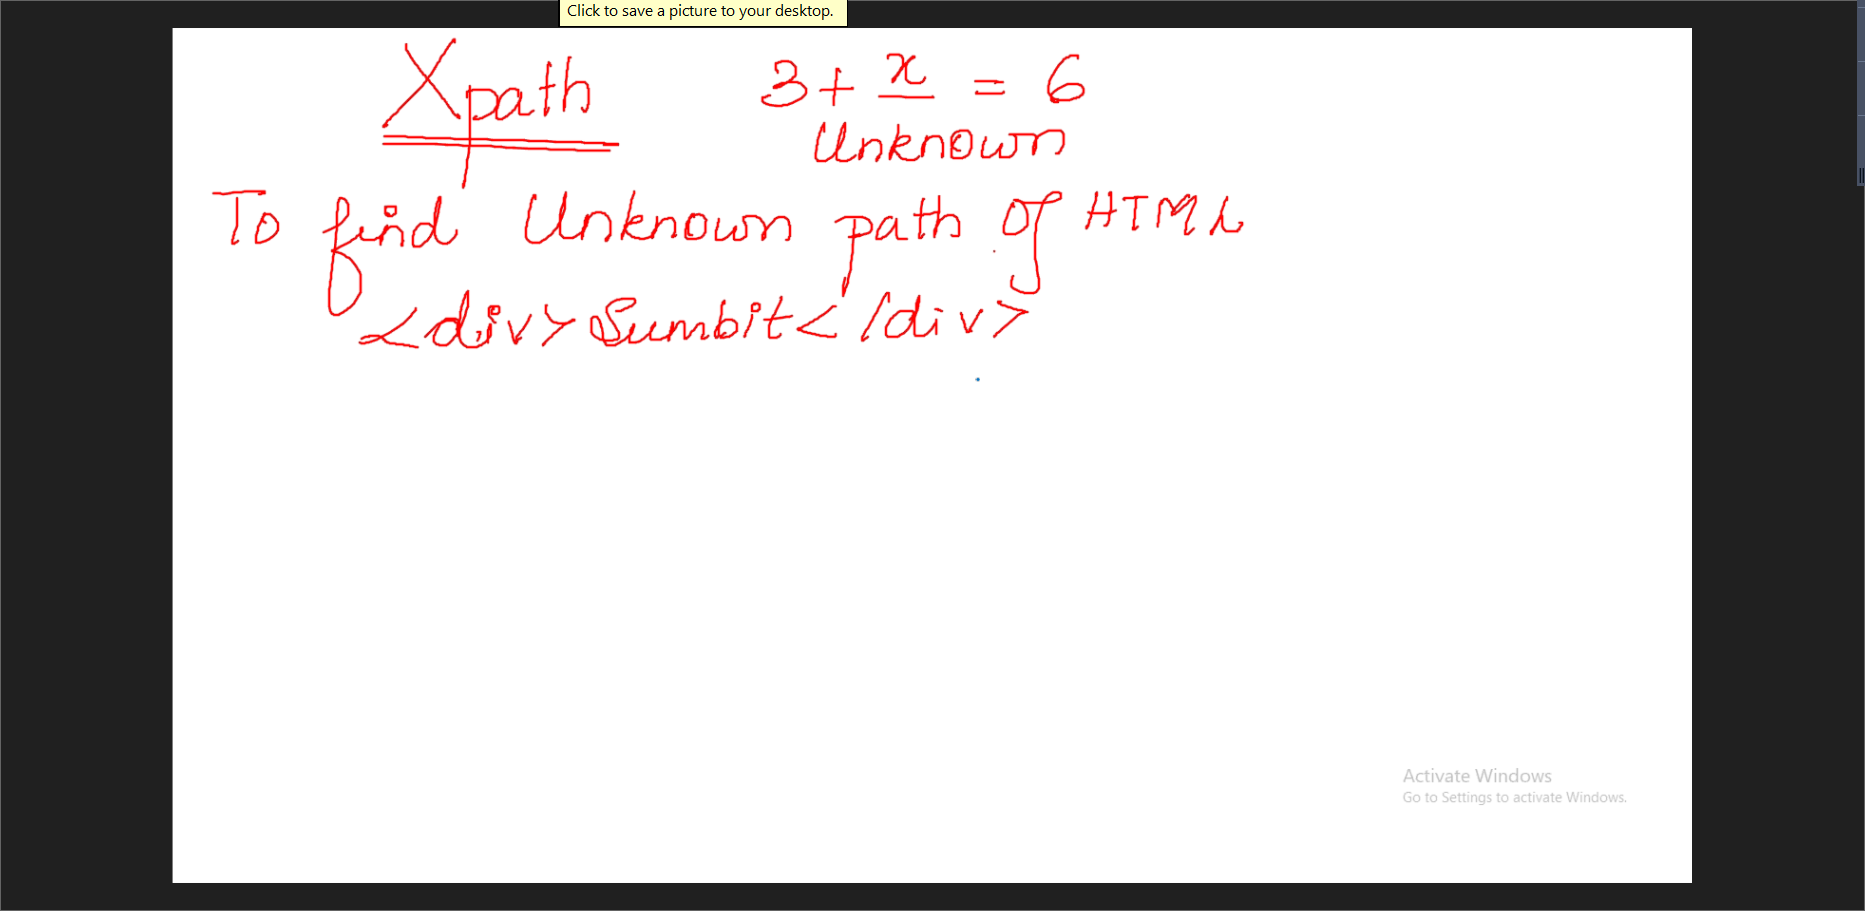 Click to save a picture to your desktop.
Xpath 3 + x = 6
Unknown
To find Unknown path of HTML
<div>Sumbit</div>
Activate Windows
Go to Settings to activate Windows.